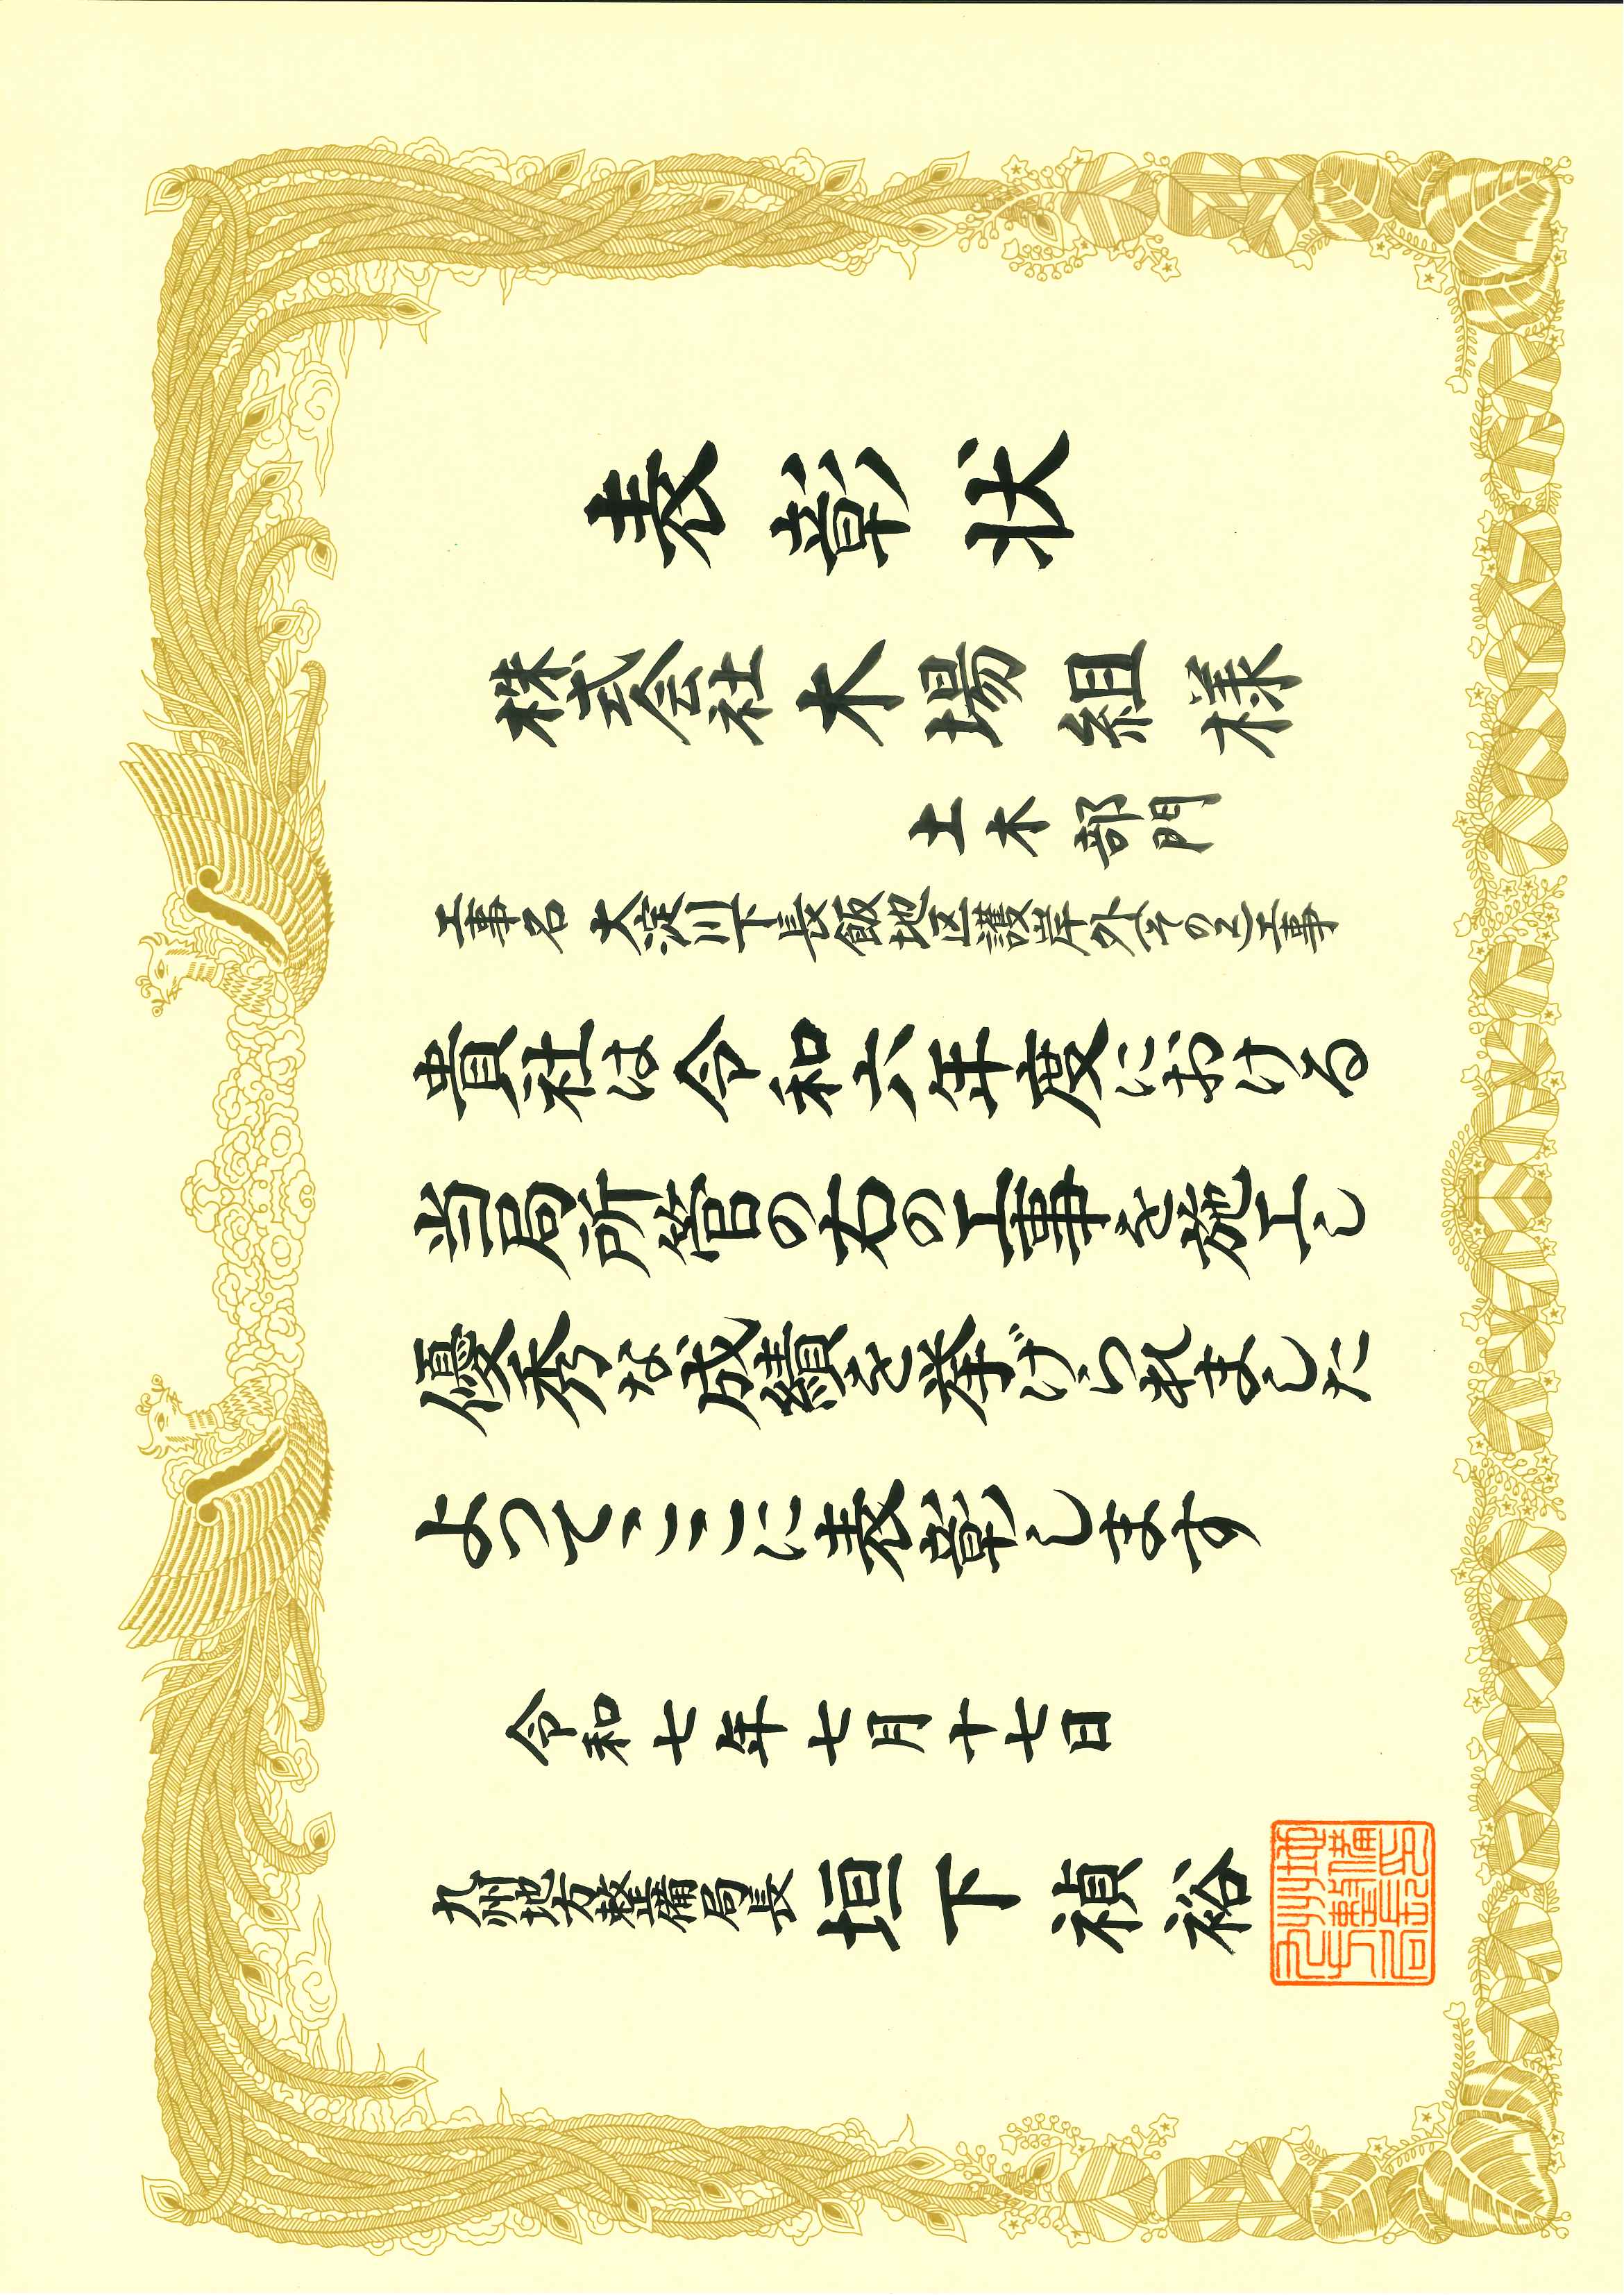 表彰状
株式会社木場組様
土木部門
工事名 大淀川下長飯地区護岸外その２工事
貴社は令和六年度における
当局所管の右の工事を施工し
優秀な成績を挙げられました
よってここに表彰します
令和七年七月十七日
九州地方整備局長 垣下禎裕
九州地方整備局長印